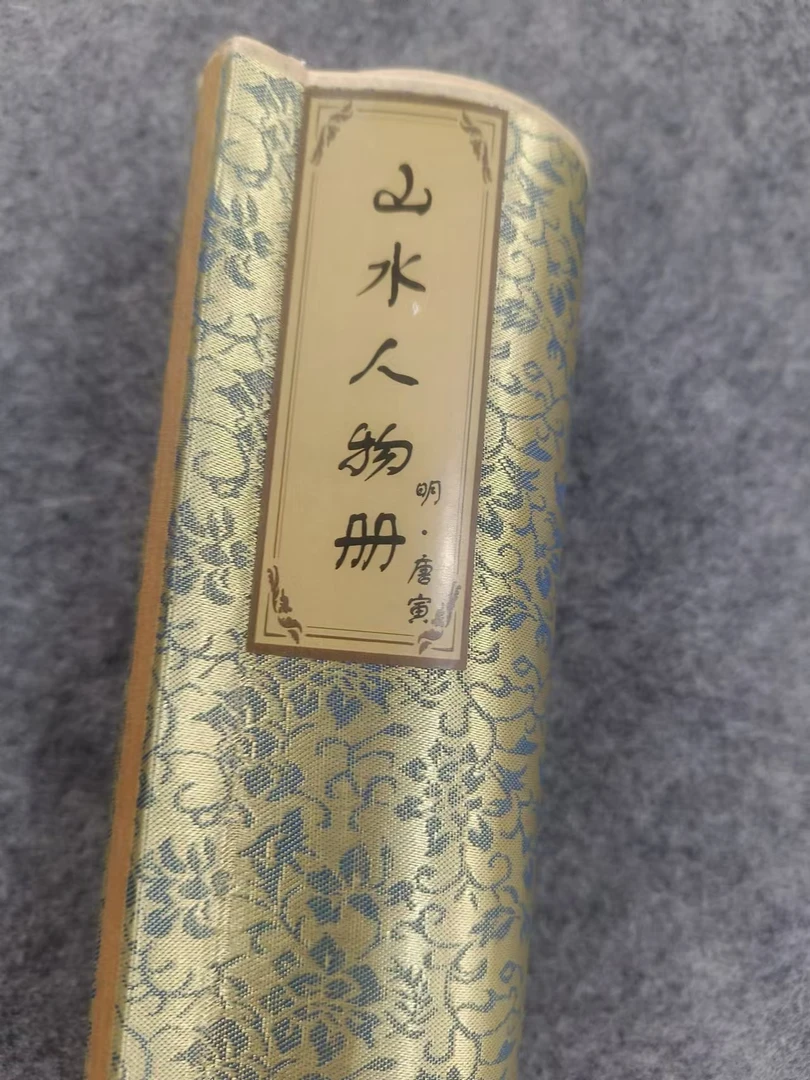 山水人物册
明·唐寅